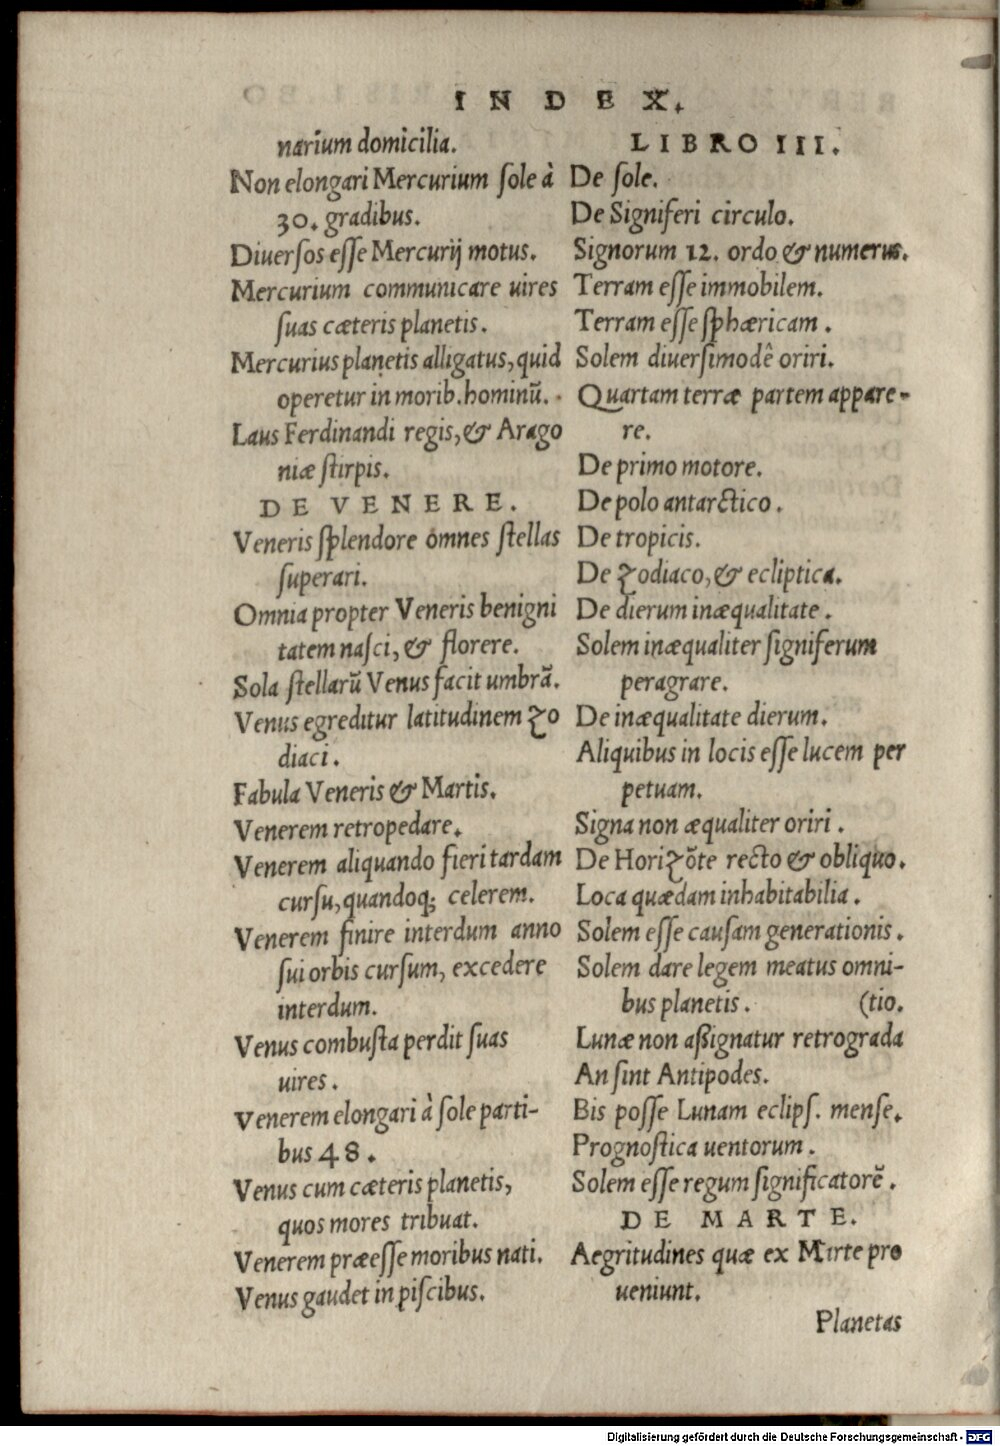 INDEX.
narium domicilia.
Non elongari Mercurium ſole à
30. gradibus.
Diuerſos eſſe Mercurij motus.
Mercurium communicare uires
ſuas cæteris planetis.
Mercurius planetis alligatus, quid
operetur in morib. hominũ.
Laus Ferdinandi regis, & Arago
niæ ſtirpis.
DE VENERE.
Veneris ſplendore omnes ſtellas
ſuperari.
Omnia propter Veneris benigni
tatem naſci, & florere.
Sola ſtellarũ Venus facit umbrã.
Venus egreditur latitudinem zo
diaci.
Fabula Veneris & Martis.
Venerem retropedare.
Venerem aliquando fieri tardam
curſu, quandoq; celerem.
Venerem finire interdum anno
ſui orbis curſum, excedere
interdum.
Venus combuſta perdit ſuas
uires.
Venerem elongari à ſole parti-
bus 48.
Venus cum cæteris planetis,
quos mores tribuat.
Venerem præeſſe moribus nati.
Venus gaudet in piſcibus.
LIBRO III.
De ſole.
De Signiferi circulo.
Signorum 12. ordo & numerus.
Terram eſſe immobilem.
Terram eſſe ſphæricam.
Solem diuerſimodê oriri.
Quartam terræ partem appare-
re.
De primo motore.
De polo antarctico.
De tropicis.
De zodiaco, & ecliptica.
De dierum inæqualitate.
Solem inæqualiter ſigniferum
peragrare.
De inæqualitate dierum.
Aliquibus in locis eſſe lucem per
petuam.
Signa non æqualiter oriri.
De Horizõte recto & obliquo.
Loca quædam inhabitabilia.
Solem eſſe cauſam generationis.
Solem dare legem meatus omni-
bus planetis. (tio.
Lunæ non aßignatur retrograda
An ſint Antipodes.
Bis poſſe Lunam eclipſ. menſe.
Prognoſtica uentorum.
Solem eſſe regum ſignificatorẽ.
DE MARTE.
Aegritudines quæ ex Marte pro
ueniunt.
Planetas
Digitalisierung gefördert durch die Deutsche Forschungsgemeinschaft - DFG